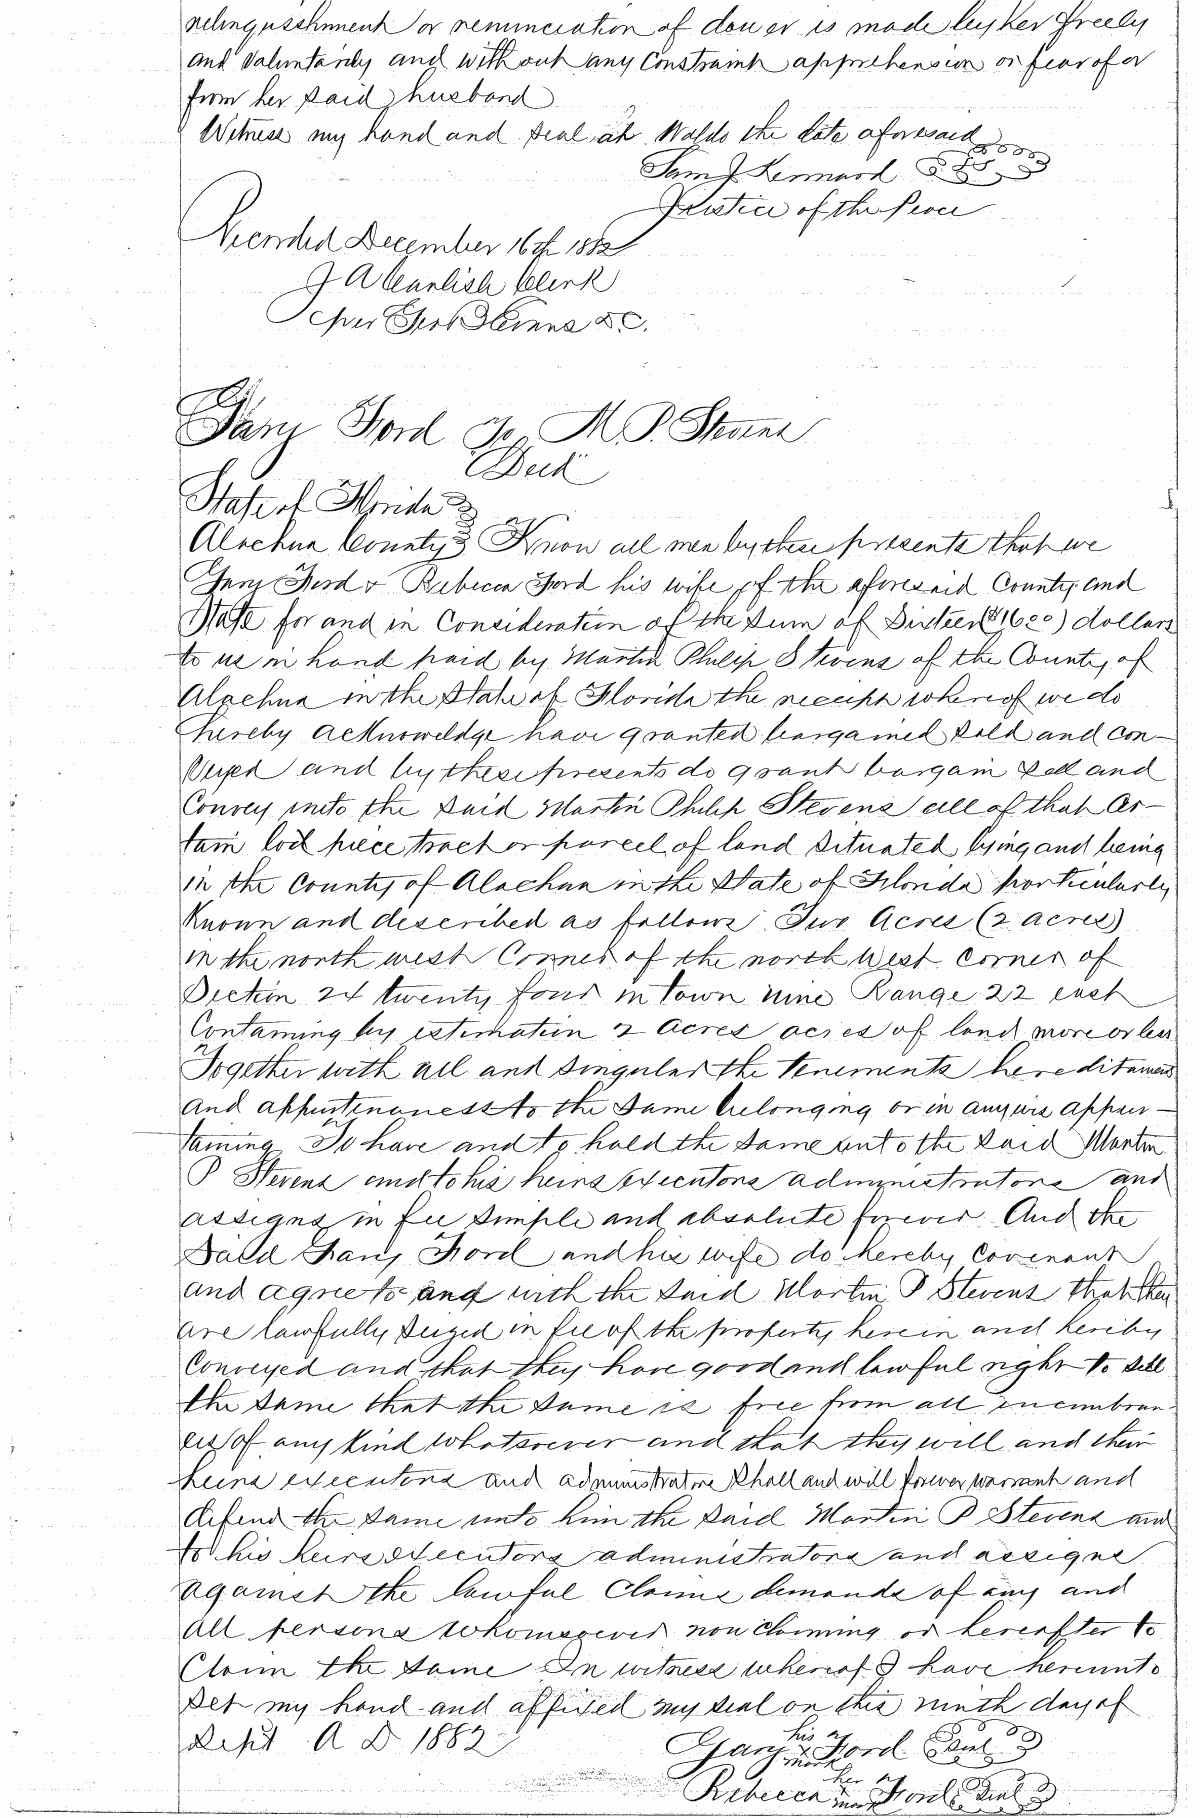 relinquishment or renunciation of dower is made by her freely
and Voluntarily and without any Constraint apprehension or fear of or
from her said husband
Witness my hand and seal at Waldo the date aforesaid
Sam J Kennard
Justice of the Peace
Recorded December 16th 1882
J A Carlisle Clerk
per D.C.
Gary Ford To M. P. Stevens
Deed
State of Florida
Alachua County Know all men by these presents that we
Gary Ford & Rebecca Ford his wife of the aforesaid County and
State for and in Consideration of the Sum of Sixteen ($16.00) dollars
to us in hand paid by Martin Philip Stevens of the County of
Alachua in the State of Florida the receipt whereof we do
hereby acknoweldge have granted bargained sold and con-
veyed and by these presents do grant bargain sell and
Convey unto the said Martin Philip Stevens all of that cer-
tain lot piece tract or parcel of land situated lying and being
in the County of Alachua in the State of Florida particularly
Known and described as follows Two Acres (2 acres)
in the north west Corner of the north West corner of
Section 24 twenty four in Town nine Range 22 east
Containing by estimation 2 Acres acres of land more or less
Together with all and singular the tenements hereditaments
and appurtenances to the same belonging or in anywise apper-
taining To have and to hold the same unto the said Martin
P Stevens and to his heirs executors administrators and
assigns in fee simple and absolute forever And the
Said Gary Ford and his wife do hereby covenant
and agree to and with the said Martin P Stevens that they
are lawfully seized in fee of the property herein and hereby
Conveyed and that they have good and lawful right to sell
the same that the same is free from all incumbran-
ces of any kind whatsoever and that they will and their
heirs executors and administrators shall and will forever warrant and
defend the same unto him the said Martin P Stevens and
to his heirs executors administrators and assigns
against the lawful Claims demands of any and
all persons whomsoever now claiming or hereafter to
Claim the same In witness whereof I have hereunto
set my hand and affixed my seal on this ninth day of
Sept A D 1882
Gary his x mark Ford Seal
Rebecca her x mark Ford Seal